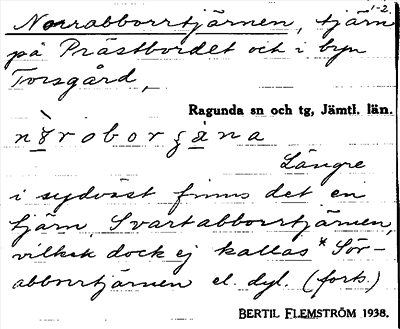 1-2.
Norrabborrtjärnen, tjärn
på Prästbordet och i byn
Torsgård,
Ragunda sn och tg, Jämtl. län.
Längre
i sydväst finns det en
tjärn, Svartabborrtjärnen,
vilken dock ej kallas *Sör-
abborrtjärnen el. dyl. (forts.)
BERTIL FLEMSTRÖM 1938.